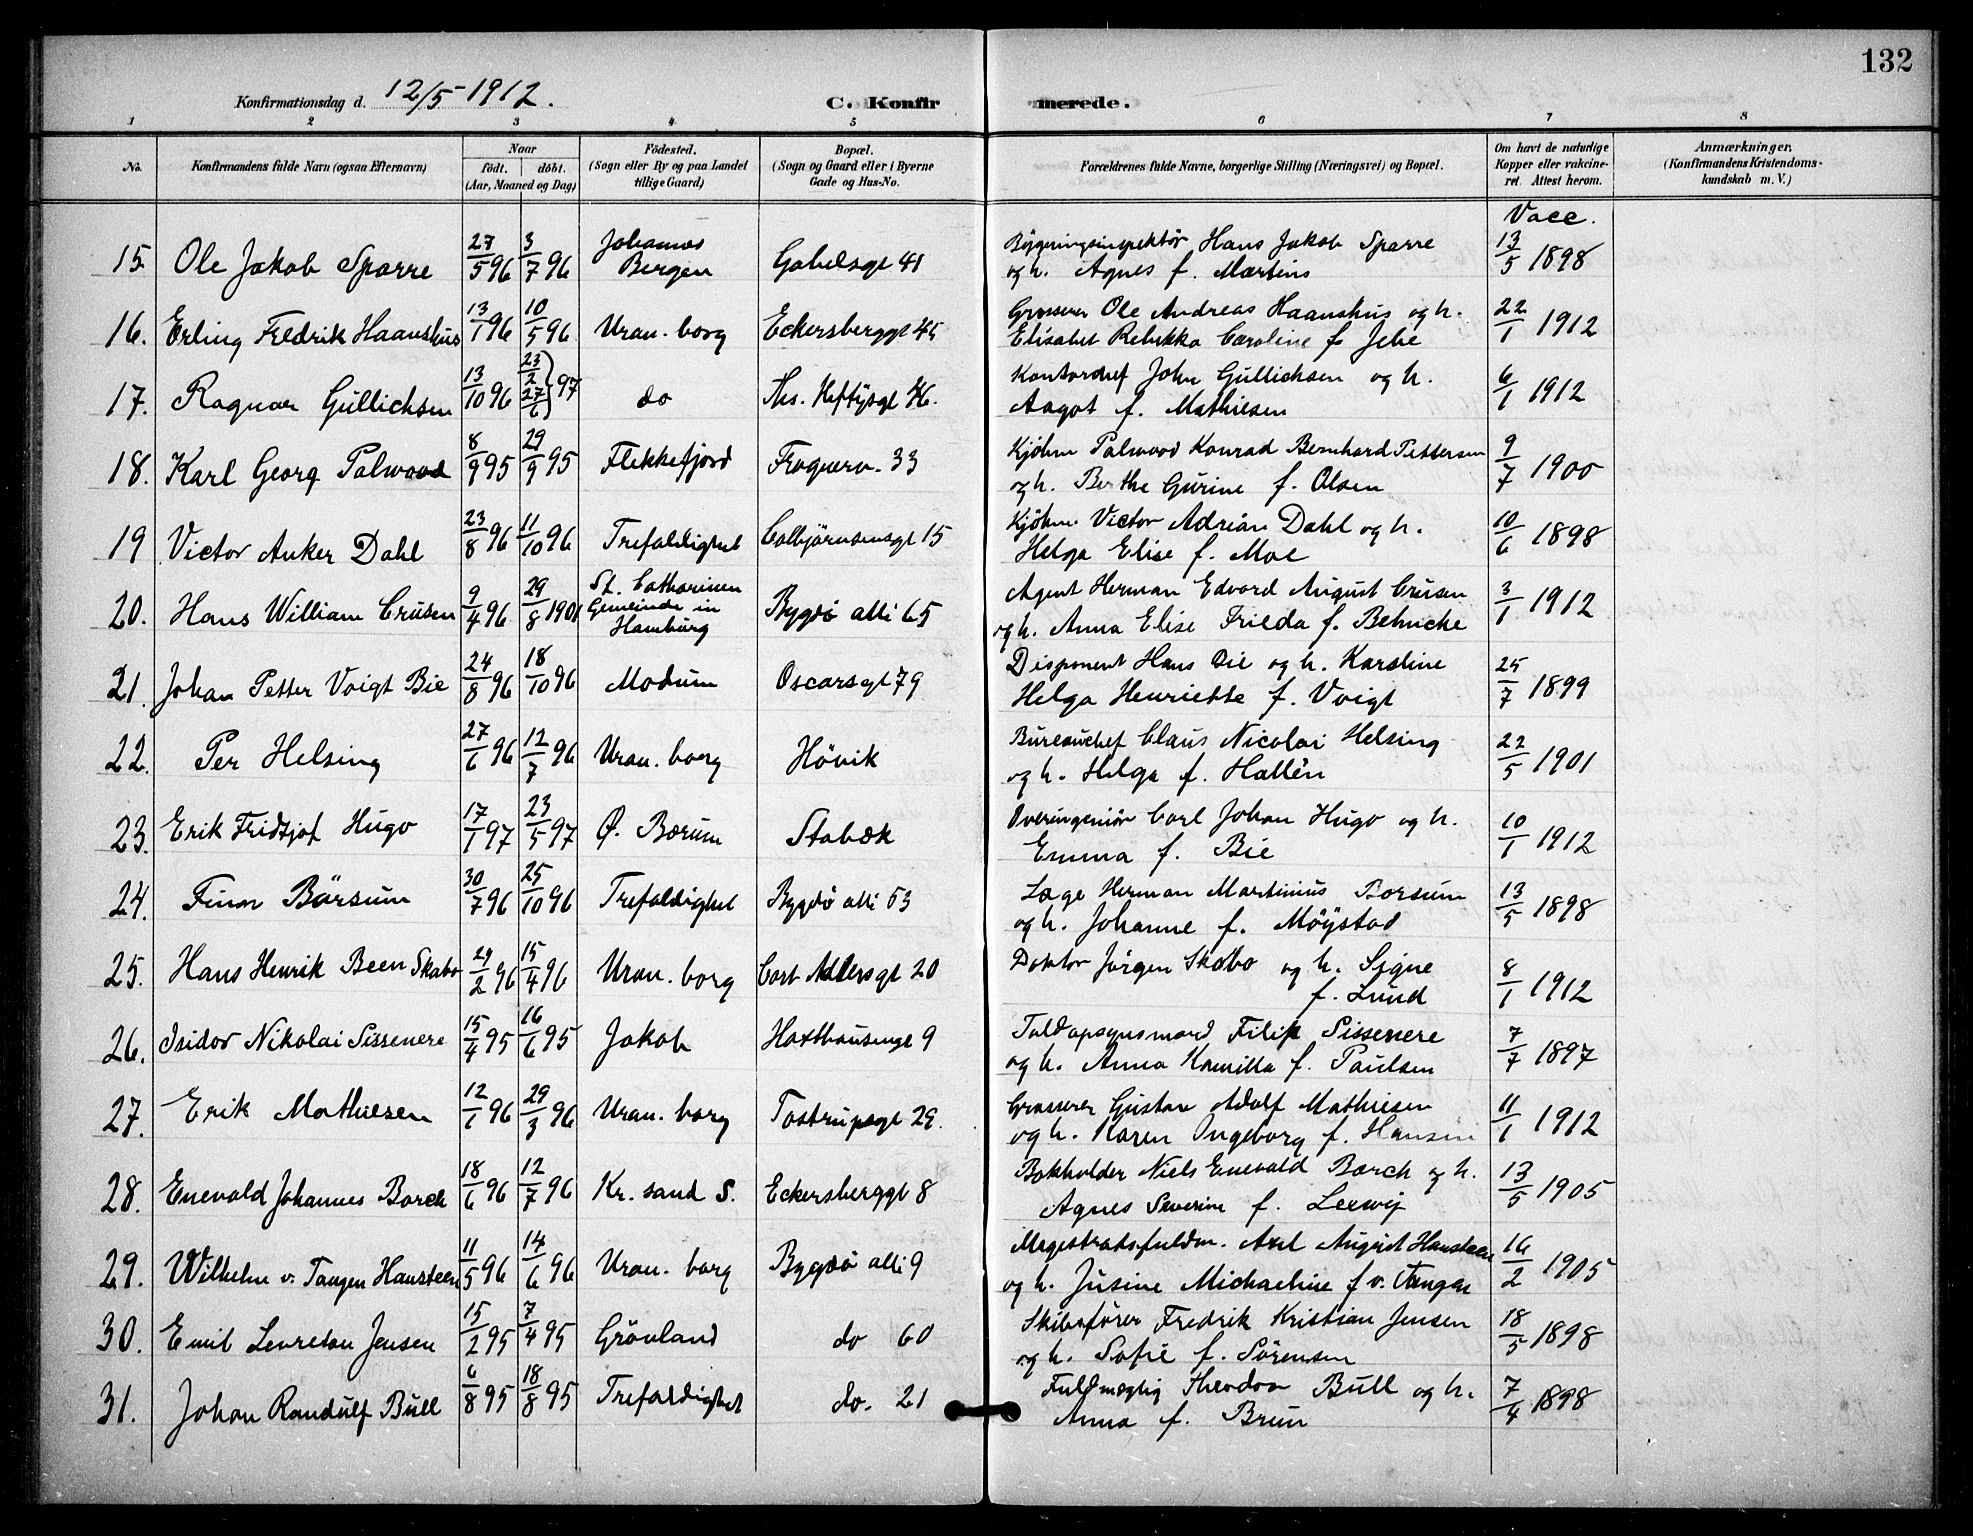 132
Konfirmationsdag d. 12/5-1912.
C. Konfirmerede.
1 2 3 4 5 6 7 8
No. Konfirmandens fulde Navn (ogsaa Efternavn) Naar født. døbt. (Aar, Maaned og Dag) Fødested. (Sogn eller By og paa Landet tillige Gaard) Bopæl. (Sogn og Gaard eller i Byerne Gade og Hus-No. Forældrenes fulde Navne, borgerlige Stilling (Næringsvei) og Bopæl. Om havt de naturlige Kopper eller vakcineret. Attest herom. Anmærkninger. (Konfirmandens Kristendomskundskab m. V.)
Vacc.
15. Ole Jakob Sparre 27/5 96 3/7 96 Johannes Bergen Gabelsgt 41 Bygningsinspektør Hans Jakob Sparre 13/5 1898
og h. Agnes f. Martens
16. Erling Fredrik Haanshus 13/1 96 10/5 96 Uran. borg Eckersberggt 45 Grosserer Ole Andreas Haanshus og h. 22/1 1912
Elisabet Rebekka Caroline f. Jebe
17. Ragnar Gullichsen 13/10 96 23/2 27/6 } 97 do Ths. Heftysgt 46. Kontorchef John Gullichsen og h. 6/1 1912
Aagot f. Mathiesen
18. Karl Georg Palwood 8/9 95 29/9 95 Flekkefjord Frognerv. 33 Kjøbm Palwood Konrad Bernhard Pettersen 9/7 1900
og h. Berthe Gurine f. Olsen
19 Victor Anker Dahl 23/8 96 11/10 96 Trefoldighet Colbjørnsensgt 15 Kjøbm. Victor Adrian Dahl og h. 10/6 1898
Helga Elise f. Moe
20. Hans William Crusen 9/4 96 29/8 1901 St. Catharinen Gemeinde in Hamburg Bygdø allé 65 Agent Herman Edvard August Crusen 3/1 1912
og h. Anna Elise Frieda f. Behncke
21. Johan Petter Voigt Bie 24/8 96 18/10 96 Modum Oscarsgt 79 Disponent Hans Bie og h. Karstine 25/7 1899
Helga Henriette f. Voigt
22. Per Helsing 27/6 96 12/7 96 Uran. borg Høvik Bureauchef Claus Nicolai Helsing 22/5 1901
og h. Helga f. Hallén
23. Erik Fridtjof Hugo 17/1 97 23/5 97 Ø. Bærum Stabæk Overingeniør Carl Johan Hugo og h. 10/1 1912
Emma f. Bie
24. Finn Børsum 30/7 96 25/10 96 Trefoldighet Bygdø allé 53 Læge Herman Martinius Borsum 13/5 1898
og h. Johanne f. Møystad
25. Hans Henrik Been Skabo 29/2 96 15/4 96 Uran. borg Cort Adlersgt 20 Doktor Jørgen Skabo og h. Signe 8/1 1912
f. Lund
26. Isidor Nikolai Sissenere 15/4 95 16/6 95 Jakob Haxthausensgt 9 Toldopsynsmand Filip Sissenere 7/7 1897
og h. Anna Kamilla f. Paulsen
27. Erik Mathiesen 12/1 96 29/3 96 Uran. borg Tostrupsgt 29. Grosserer Gustav Adolf Mathiesen 11/1 1912
og h. Karen Ingeborg f. Hansen
28. Enevald Johannes Borch 18/6 96 12/7 96 Kr. sand S. Eckersberggt 8 Bokholder Niels Enevald Borch og h. 13/5 1905
Agnes Severine f.
29. Wilhelm v. Tangen Hansteen 11/5 96 14/6 96 Uran. borg Bygdø allé 9 Magistratsfuldm. Axel August Hansteen 16/2 1905
og h. Jusine Michaeline f v. Tangen
30. Emil Levretan Jensen 15/2 95 7/4 95 Grønland do 60 Skibsfører Fredrik Kristian Jensen 18/5 1898
og h. Sofie f. Sørensen
31. Johan Randulf Bull 6/8 95 18/8 95 Trefoldighet do. 21 Fuldmægtig Theodor Bull og h. 7/4 1898
Anna f. Brun